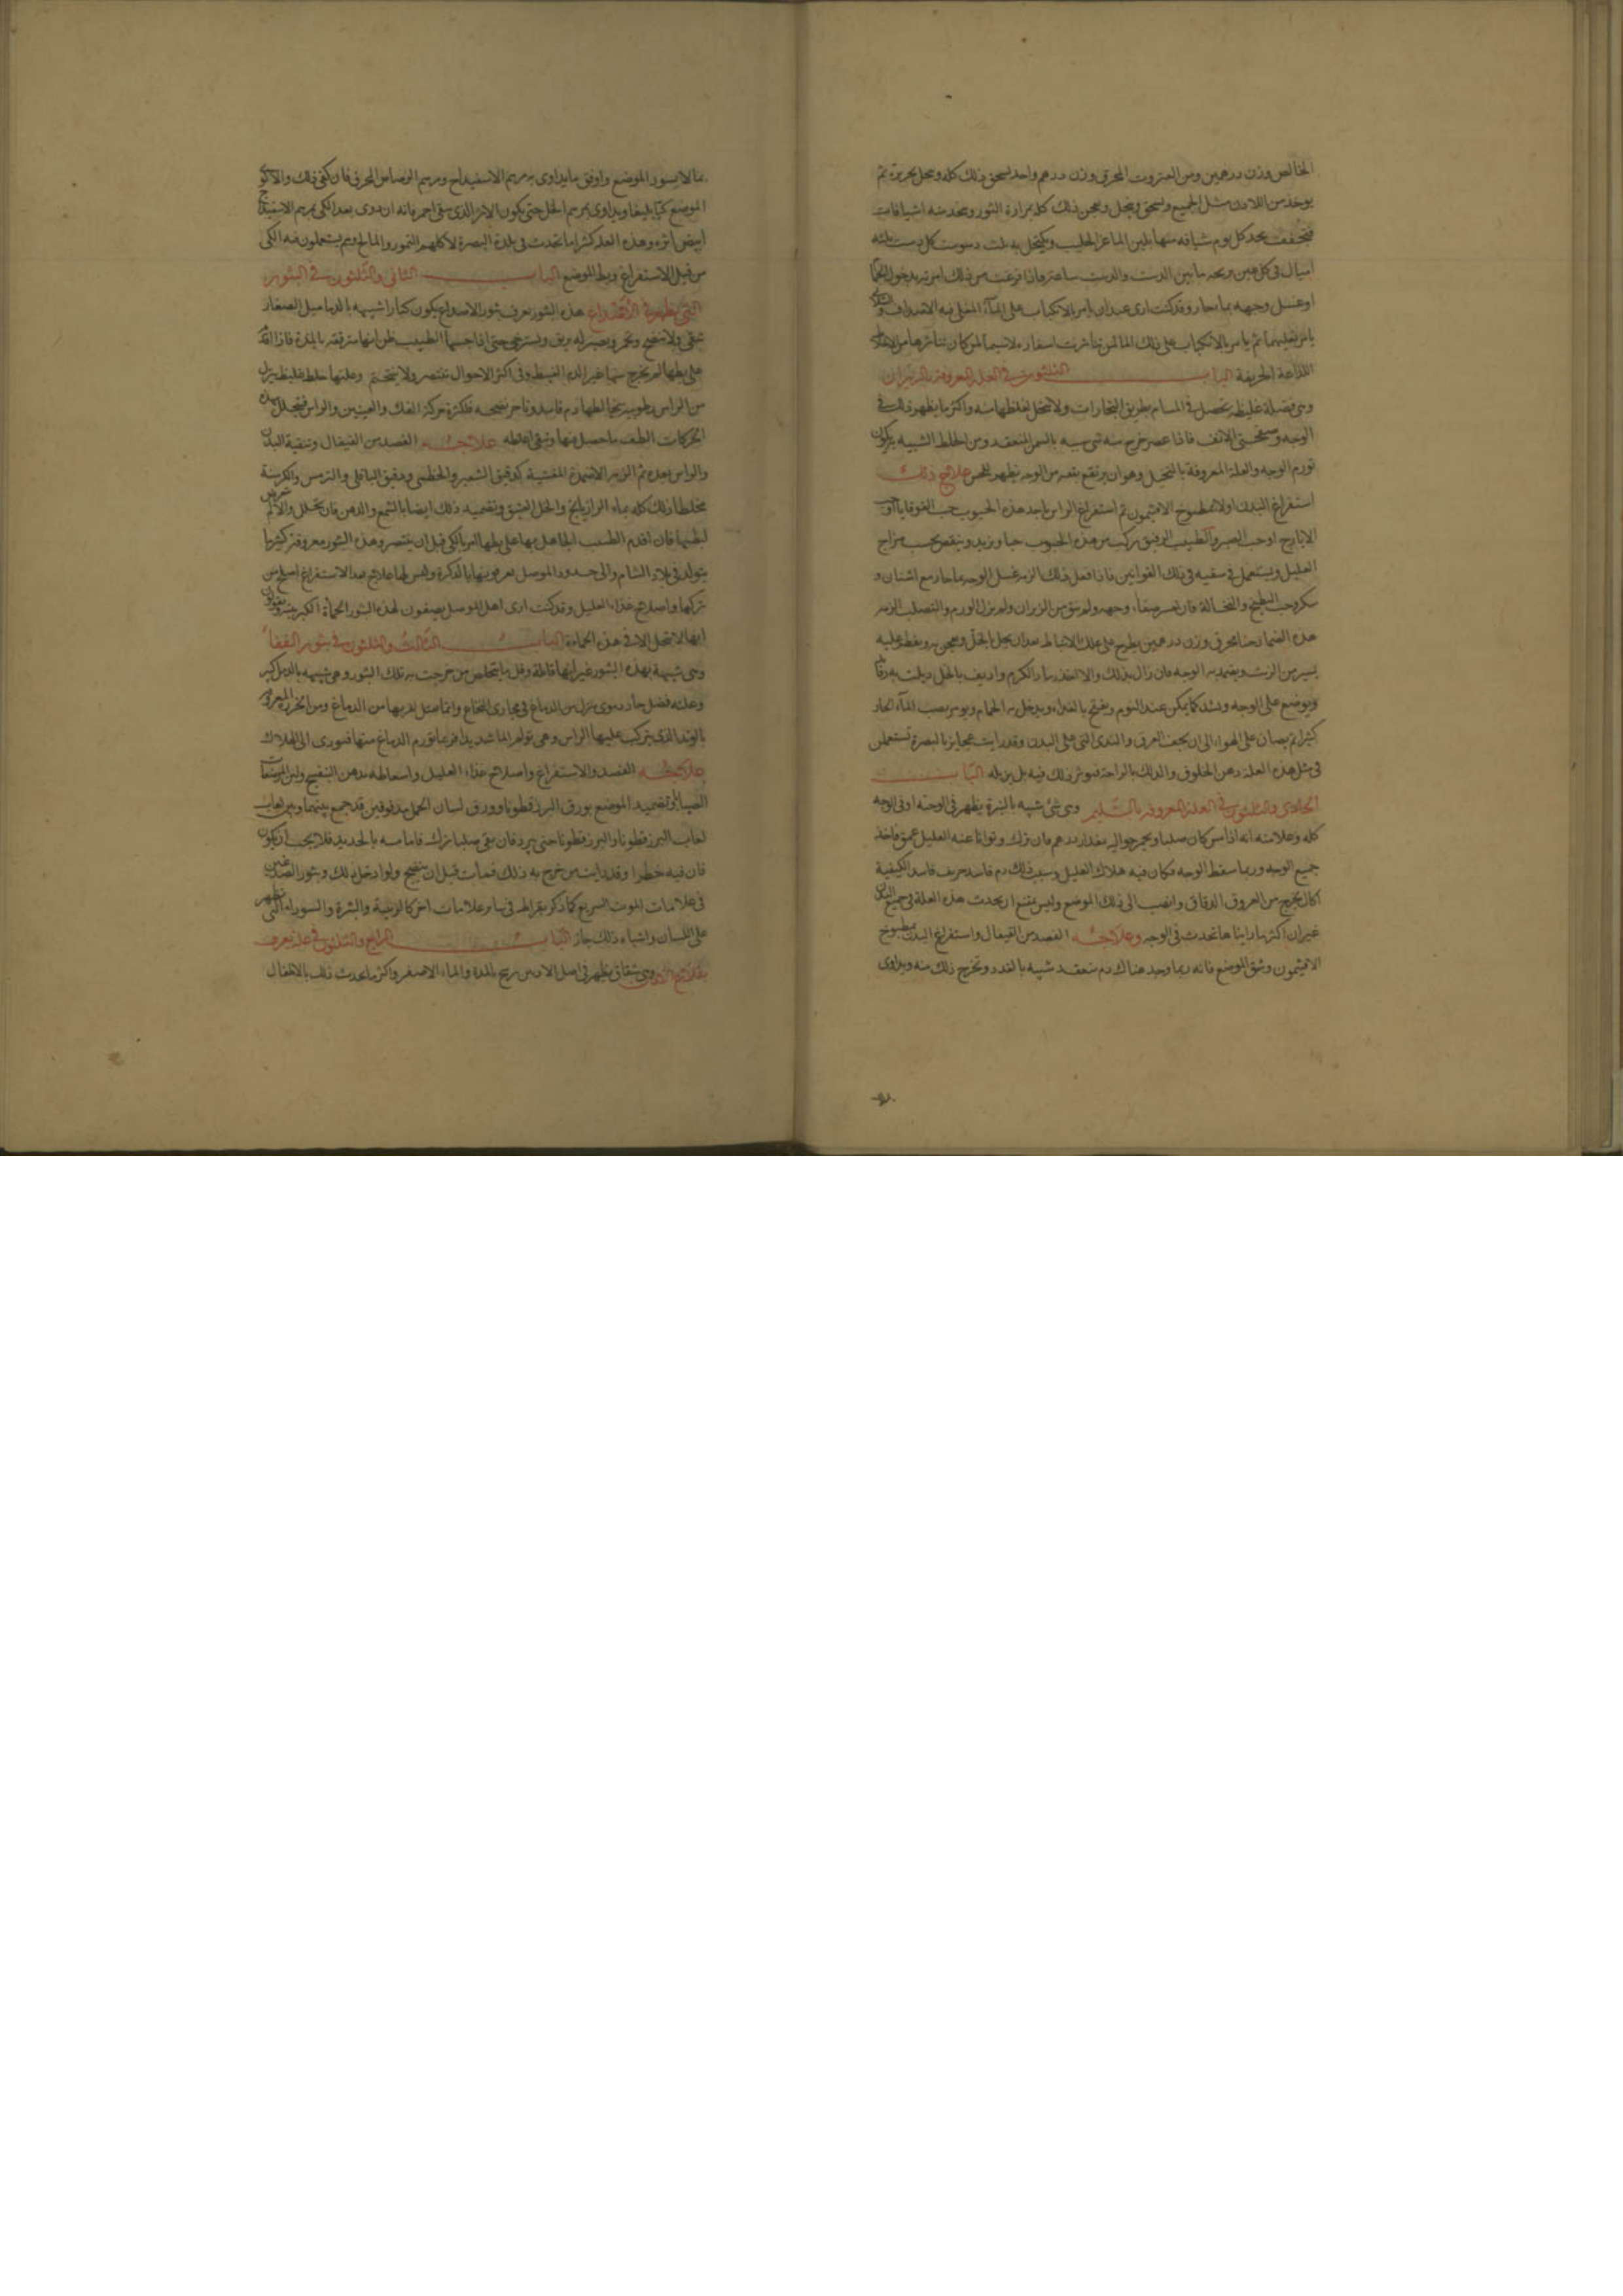 الخالص وزن درهمين ومن العنزروت المحرق وزن درهم واحد يسحق ذلك كله وينخل بحريرة ثم
يوخذ من اللادن مثل الجميع ويسحق وينخل ويعجن ذلك كله بمرارة الثور ويتخذ منه اشيافات
ويجفف يحد كل يوم شيافه منها بلبن الماعز الحليب ويكتحل به ثلث دسوت كل دست ثلثه
اميال في كل عين ويجر ما بين الدست والدست ساعتر فاذا فرغت من ذلك امر بدخول الحمام
او غسل وجهه بماء حار وقد كنت ارى عبدان يامر بالانكباب على الماء المغلى فيه الاصداف
يامر بالانكباب على ذلك الماء لمن تناثرت اسفاره لاسيما لمن كان تناثرها من
اللذاعة الحريفة الباب الثلثون في العلة المعروفة بالزبران
وهي فضلة غليظة تحصل في المسام بطريق البخارات ولا تنحل لغلظها منه واكثر ما يظهر ذلك في
الوجه وصفحتى الانف فاذا عصر خرج منه شى شبيه بالسمن المنعقد ومن الخلط الشبيه يكون
تورم الوجه والعلة المعروفة بالنخل وهو ان يرتفع بقعه من الوجه يظهر للحس علاج ذلك
استفراغ البدن اولا بمطبوخ الافتيمون ثم استفراغ الراس باحد هذه الحبوب حب القوقايا او حب
الايارج او حب الصبر والطبيب الرفيق يركب من هذه الحبوب حبا ويزيد وينقص بحسب مزاج
العليل ويستعمل في سقيه ذلك القوانين فاذا فعل ذلك الزم غسل الوجه بماء حار مع اشنان و
سكر وحب البطيخ والنخالة فان وجهه ولم يبق من الزبران ولم يزل الورم والتصلب الزم
هذه الضماد حنا محرق وزن درهمين يطرح عليه علك الانباط بعد ان يحل بالخل ويعجن به ويقطر عليه
يسير من الزيت ويضمد به الوجه فان زال بذلك والا اتخذ رماد الكرم واديف بالخل
ويوضع على الوجه ويشد كما يمكن عند النوم ويفتح بالغداء ويدخل به الحمام ويومر بصب الماء الحار
كثيرا ثم يصان على الهواء الى ان يجف العرق والندى التى على البدن وقد رايت عجايز بالبصرة تستعملن
في مثل هذه العلة دهن الخلوق والدلك بالراحة فيوثر ذلك فيه بل يزيله الباب
الحادي والثلثون في العلة المعروفة بالسليم وهي شئ شبيه بالبثرة يظهر في الوجنة او في الوجه
كله وعلامته انه اذا مس كان صلبا ويحمر حواليه بمقدار درهم فان ترك وتوانا عنه العليل عمق فاخذ
جميع الوجه وربما سقط الوجه فكان فيه هلاك العليل وسبب ذلك دم فاسد حريف فاسد الكيفية
اكال يخرج من العروق الدقاق وانصب الى ذلك الموضع وليس يمتنع ان يحدث هذه العلة في جميع البدن
غير ان اكثر ما راينا ها تحدث في الوجه وعلاجه الفصد من القيفال واستفراغ البدن بمطبوخ
الافتيمون وشق الموضع فانه ربما وجد هناك دم منعقد شبيه بالغدد وتخرج ذلك منه ويداوى
بما لا يسود الموضع واوفق ما يداوى به مرهم الاسفيداج ومرهم الرصاص المحرق فان كفى ذلك والا كوى
الموضع كيا بليغا ويداوى بمرهم الخل حتى يكون الاثر الذي بقى احمر فانه ان دوى بعد الكي بمرهم الاسفيداج
ابيض اثره وهذه العلة كثيرا ما تحدث في بلدة البصرة لاكلهم التمور والمالح وهم يستعملون فيه الكي
من قبل الاستفراغ وبط الموضع الباب الثاني والثلثون في البثور
التي يظهر في الاصداغ هذه البثور تعرف ببثور الاصداغ يكون كبارا شبيهه بالدماميل الصغار
تبقى ولا تنفتح وتحمر ويصير له بريق وتسترخي حتى اذا جسها الطبيب ظن انها مترققه بالمدة فاذا اقدم
على بطها لم يخرج منها غير الدم العبيط وفي اكثر الاحوال تختصر ولا يتختم وعلتها خلط غليظ ينزل
من الراس رطوبة يخالطها دم فاسد وتاخر نضجه فلكثرة حركة الفك والعينين والراس فيتحلل بهذه
الحركات الطف ما حصل منها وتبقى اغلظه علاجه الفصد من القيفال وتنقية البدن
والراس بعده ثم الزم الاضمدة المفتية كدقيق الشعير والخطمى ودقيق الباقلى والترمس والكرسنة
مخلطا ذلك كله بماء الرازيانج والخل العتيق وتضميد ذلك ايضا بالشمع والدهن فان تحلل والا لم تعرض
لبطها فان اقدم الطبيب الجاهل بها على بطها امر بالكي قبل ان تختصر وهذه البثور معروفة كثيرا ما
يتولد في بلاد الشام والى حدود الموصل يعرفونها بالدكرة وليس لها علاج بعد الاستفراغ اصلح من
تركها واصلاح غذاء العليل وقد كنت ارى اهل الموصل يصفون لهذه البثور الحمأة الكبريتية ويقولون
انها لا تنحل الا في هذه الحماءة الباب الثالث والثلثون في بثور القفا
وهي شبيهة بهذه البثور غير انها قاتلة وقل ما يتخلص من خرجت به تلك البثور وهي شبيهه بالدمل كبير
وعلته فضل حاد دموى ينزل من الدماغ في مجارى النخاع وانما من الدماغ ومن الخرزة المعروفة
بالوتد الذي يتركب عليها الراس وهي تولم الما شديدا فربما تورم الدماغ منها فيودى الى الهلاك
علاجه الفصد والاستفراغ واصلاح غذاء العليل واسعاطه بدهن البنفسج ولبن المرضعات
الصبيان وتضميد الموضع بورق البزر قطونا وورق لسان الحمل مدقوقين قد جمع بينهما وبين لعاب
لعاب البزر قطونا والبزر قطونا حتى يبرد فان بقى صلبا ترك فاما مسه بالحديد فلا يجب ان يكون
فان فيه خطرا وقد رايت من خرج به ذلك فمات قبل ان ينفتح ولو ادخل ذلك وبثور الصدغين
في علامات الموت السريع كما ذكر بقراط في ساير علامات اخر كالزيتية والبثرة والسوداء التى تظهر
على اللسان واشباه ذلك جاز الباب الرابع والثلثون في علة تعرف
وهي شقاق يظهر في اصل الاذنين يرشح بالمدة والماء الاصفر واكثر ما يحدث ذلك بالاطفال